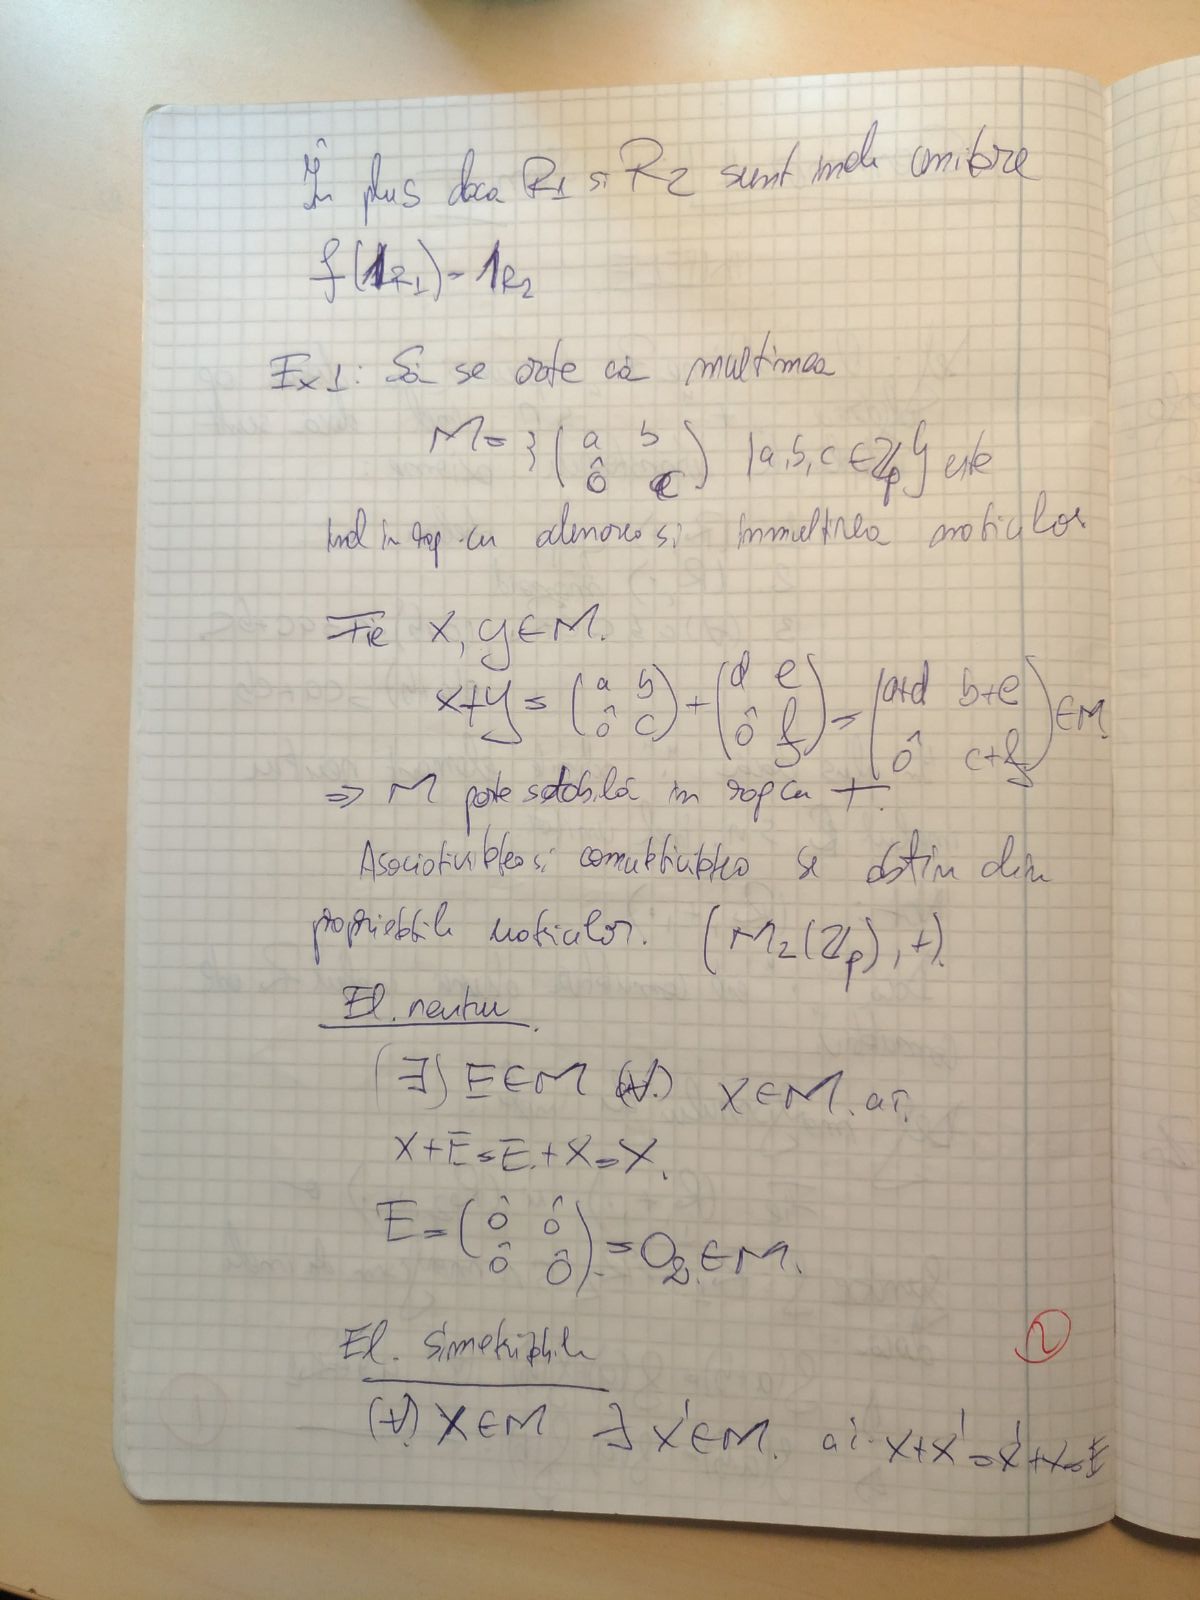 În plus daca R1 si R2 sunt inele unitare
f(1R1) = 1R2
Ex1: Să se arate că multimea
M = {(a b / 0̂ c) | a, b, c ∈ ℤp} este
inel in rap cu adunarea si inmultirea matricilor
Fie X, Y ∈ M.
X+Y = (a b / 0̂ c) + (d e / 0̂ f) = (a+d b+e / 0̂ c+f) ∈ M
⇒ M parte stabilă in rap cu +.
Asociativitatea si comutativitatea se obtin din
proprietatile matricilor. (M2(ℤp), +).
El. neutru
(∃) E ∈ M (∀) X ∈ M. aî.
X+E = E+X = X.
E = (0̂ 0̂ / 0̂ 0̂) = O2 ∈ M.
El. simetrizabile
(∀) X ∈ M ∃ X' ∈ M. aî. X+X' = X'+X = E
2